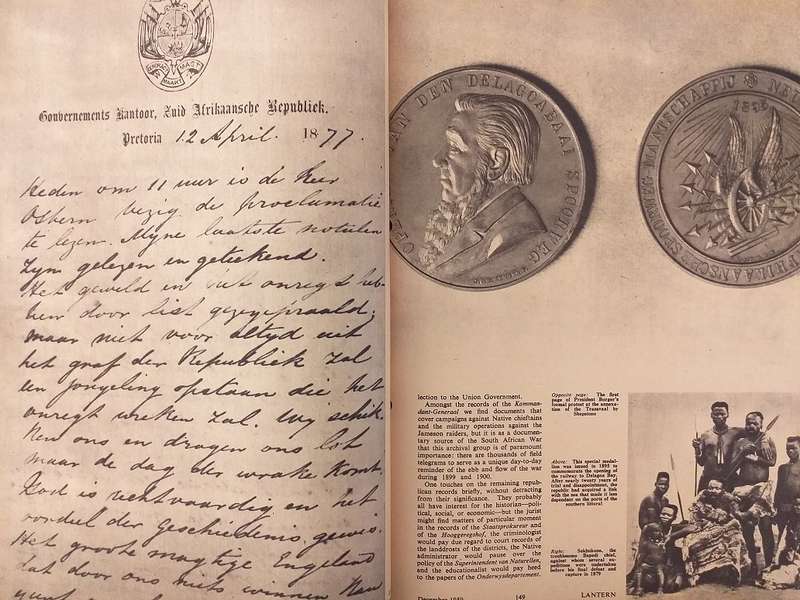 EENDRAGT MAAKT MAGT
Gouvernements Kantoor, Zuid Afrikaansche Republiek.
Pretoria 12 April. 1877.
Heden om 11 uur is de Heer
Osborn bezig de proclamatie
te lezen. Myne laatste notulen
zyn gelezen en geteekend.
Het geweld en het onregt heb-
ben door list gezegepraald;
maar niet voor altyd uit
het graf der Republiek zal
een jongeling opstaan die het
onregt wreken zal. Wy schik
ken ons en dragen ons lot
maar de dag der wraake komt.
God is rechtvaardig en het
oordeel der Geschiedenis gewis.
Het groote magtige Engeland
dat door ons niets winnen kan
VAN DEN DELAGOABAAI SPOORWEG
MAATSCHAPPIJ
1895
lection to the Union Government.
Amongst the records of the Komman-
dant-Generaal we find documents that
cover campaigns against Native chieftains
and the military operations against the
Jameson raiders, but it is as a documen-
tary source of the South African War
that this archival group is of paramount
importance: there are thousands of field
telegrams to serve as a unique day-to-day
reminder of the ebb and flow of the war
during 1899 and 1900.
One touches on the remaining repub-
lican records briefly, without detracting
from their significance. They probably
all have interest for the historian—poli-
tical, social, or economic—but the jurist
might find matters of particular moment
in the records of the Staatsprokureur and
of the Hooggeregshof, the criminologist
would pay due regard to court records of
the landdrosts of the districts, the Native
administrator would pause over the
policy of the Superintendent van Naturellen,
and the educationalist would pay heed
to the papers of the Onderwysdepartement.
Opposite page: The first
page of President Burger's
formal protest at the annexa-
tion of the Transvaal by
Shepstone
Above: This special medal-
lion was issued in 1895 to
commemorate the opening of
the railway to Delagoa Bay.
After nearly twenty years of
trial and disappointment, the
republic had acquired a link
with the sea that made it less
dependent on the ports of the
southern littoral
Right: Sekhukune, the
troublesome Bapedi chief,
against whom several ex-
peditions were undertaken
before his final defeat and
capture in 1879
149
LANTERN